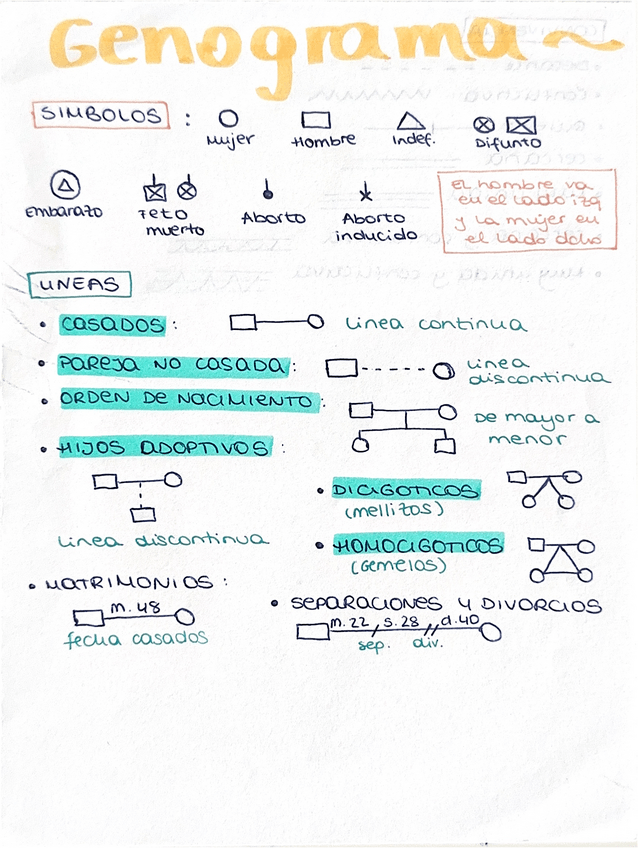 Genograma
SIMBOLOS :
Mujer Hombre Indef. Difunto
Embarazo Feto muerto Aborto Aborto inducido
el hombre va
en el lado izq
y la mujer en
el lado dcho
LINEAS
• CASADOS : linea continua
• PAREJA NO CASADA : linea discontinua
• ORDEN DE NACIMIENTO : De mayor a menor
• HIJOS ADOPTIVOS :
linea discontinua
• DICIGOTICOS
(mellizos)
• HOMOCIGOTICOS
(Gemelos)
• MATRIMONIOS :
m. 48
fecha casados
• SEPARACIONES Y DIVORCIOS
m. 22 / s. 28 // d. 40
sep. div.